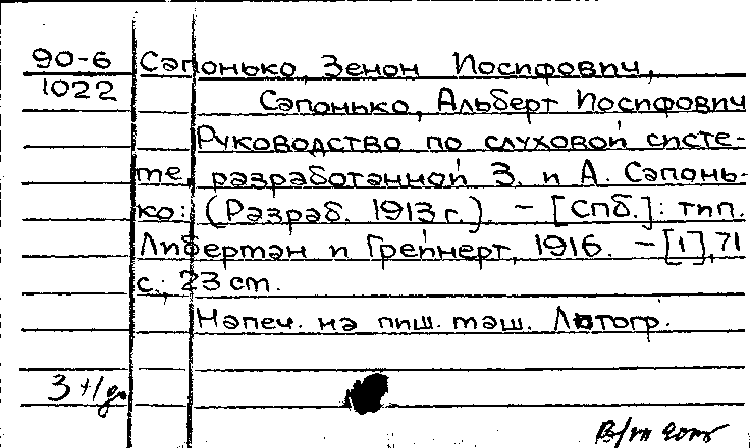 90-6
1022
Сапонько, Зенон Иосифович,
Сапонько, Альберт Иосифович
Руководство по слуховой систе-
ме, разработанной З. и А. Сапонь-
ко: (Разраб. 1913 г.). — [Спб.]: тип.
Либерман и Грейнерт, 1916. — [1], 71
с.; 23 см.
Напеч. на пиш. маш. Литогр.
3